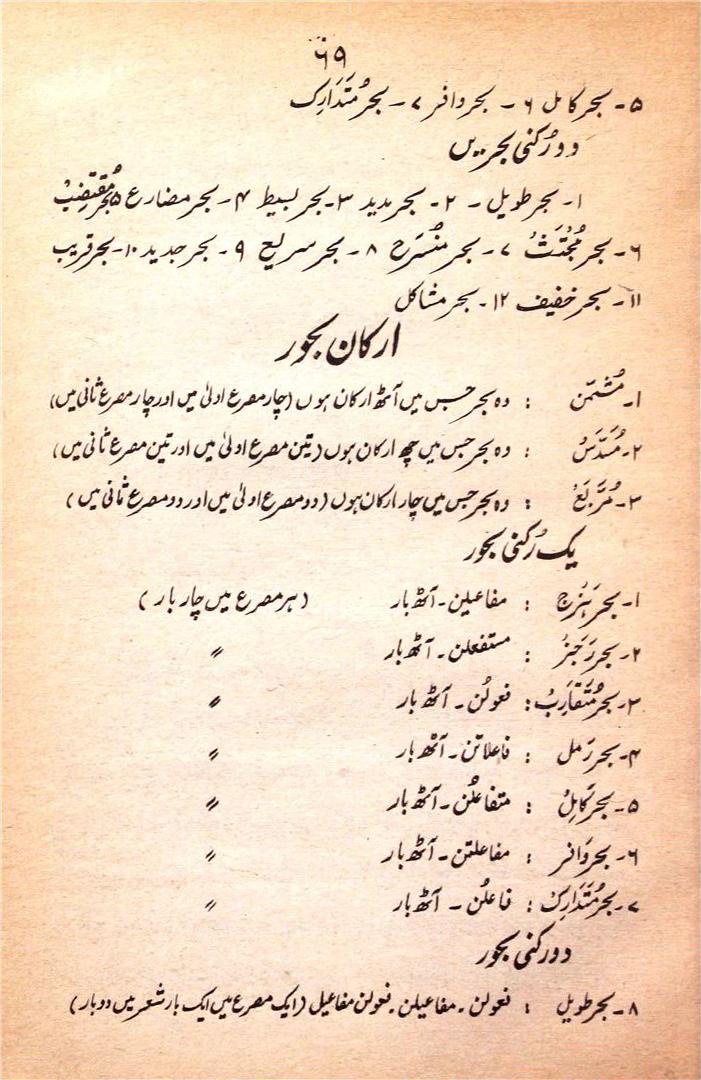 ۶۹
۵۔ بحر کامل ۶ ۔ بحر وافر ۷ ۔ بحر مُتَدَارِک
دو رُکنی بحریں
۱۔ بحر طویل ۔ ۲۔ بحر مدید ۳۔ بحر بسیط ۴۔ بحر مضارع ۵ بحر مُقتَضِبْ
۶۔ بحر مُجْتَثْ ۷۔ بحر مُنْسَرِح ۸۔ بحر سریع ۹۔ بحر جدید ۱۰۔ بحر قریب
۱۱۔ بحر خفیف ۱۲۔ بحر مشاکل
ارکان بحور
۱۔ مُثَمَّن : وہ بحر جس میں آٹھ ارکان ہوں (چار مصرع اولیٰ میں اور چار مصرع ثانی میں)
۲۔ مُسَدَّسْ : وہ بحر جس میں چھ ارکان ہوں (تین مصرع اولیٰ میں اور تین مصرع ثانی میں)
۳۔ مُرَبَّعْ : وہ بحر جس میں چار ارکان ہوں (دو مصرع اولیٰ میں اور دو مصرع ثانی میں)
یک رُکنی بحور
۱۔ بحر ہَزَج : مفاعیلن۔ آٹھ بار (ہر مصرع میں چار بار)
۲۔ بحر رَجَزْ : مستفعلن۔ آٹھ بار 〃
۳۔ بحر مُتَقَارِبْ : فعولُن ۔ آٹھ بار 〃
۴۔ بحر رَمل : فاعلاتن۔ آٹھ بار 〃
۵۔ بحر کَامِلْ : متفاعلُن۔ آٹھ بار 〃
۶۔ بحر وَافر : مفاعلتن۔ آٹھ بار 〃
۷۔ بحر مُتَدَارِکْ : فاعلُن ۔ آٹھ بار 〃
دو رکنی بحور
۸۔ بحر طویل : فعولن ۔ مفاعیلن ۔ فعولن مفاعیل (ایک مصرع میں ایک بار شعر میں دو بار)